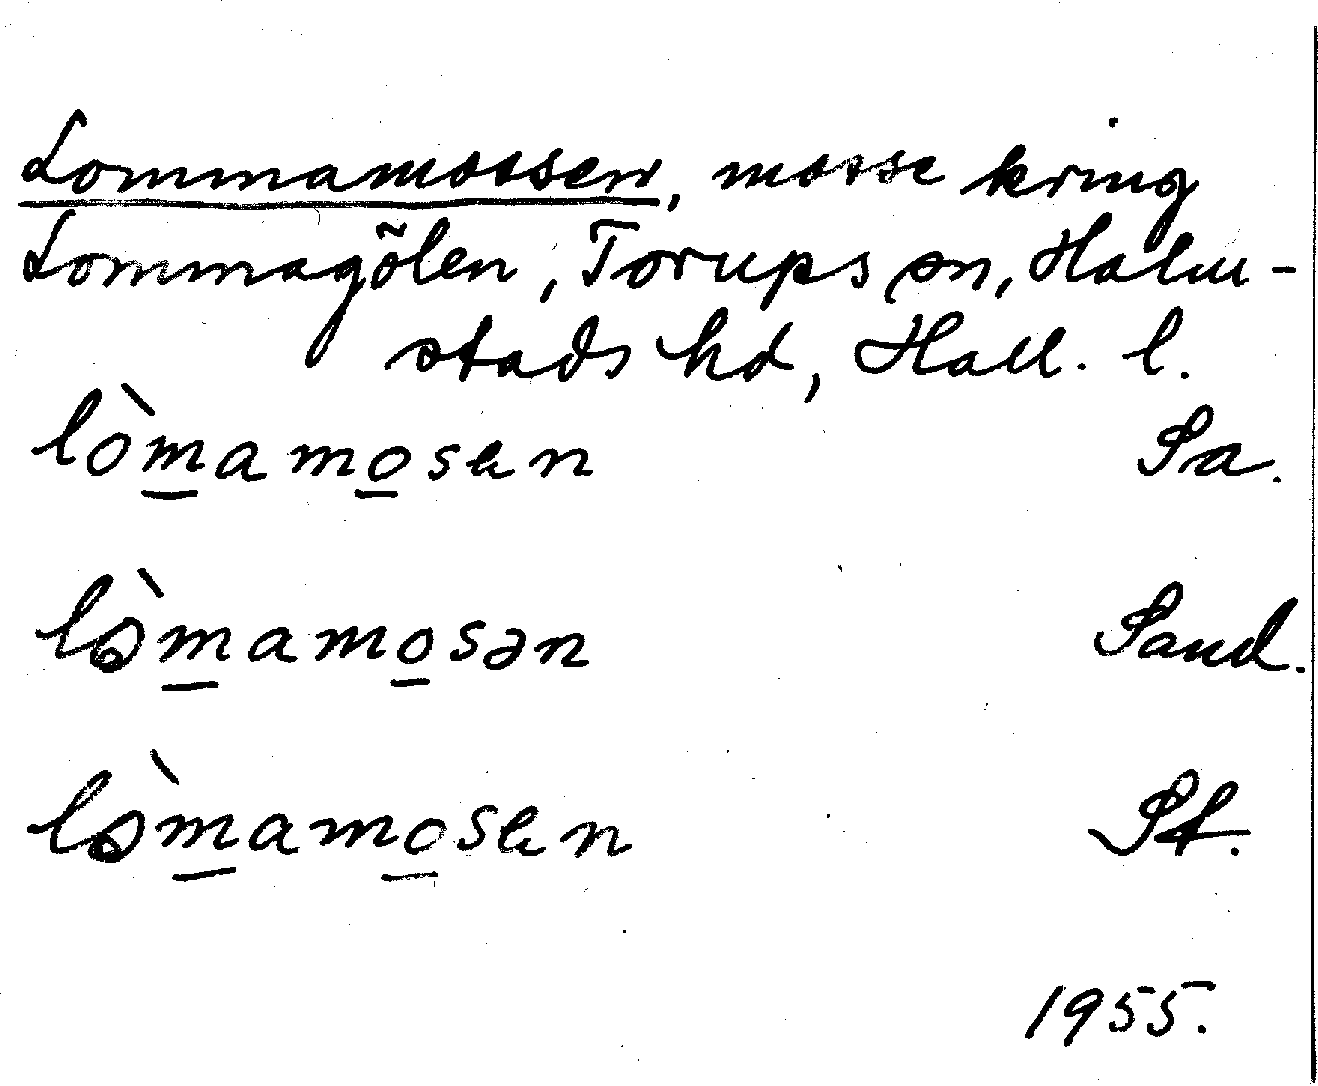 Lommamossen, mosse kring
Lommagölen, Torups sn, Halm-
stads hd, Hall. l.
lòmamosen Sa.
lòmamosən Sand.
lòmamosen St.
1955.